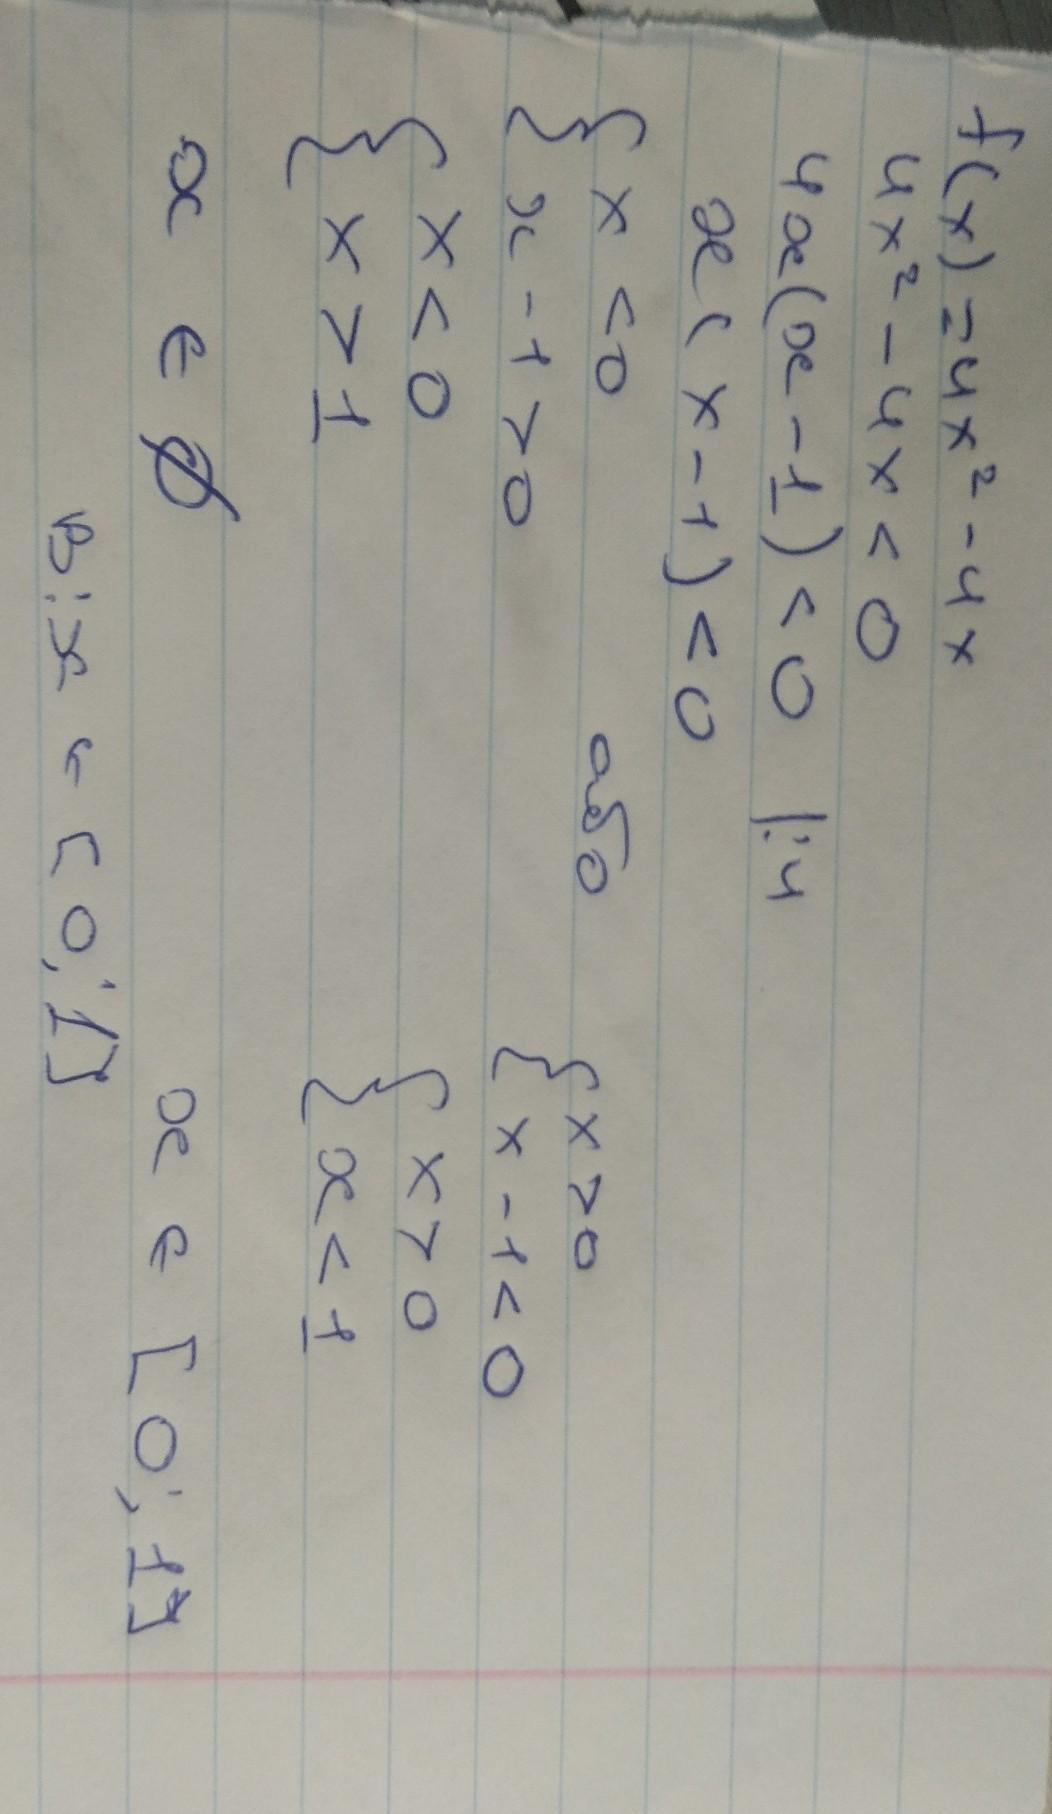 f(x) = 4x² - 4x
4x² - 4x < 0
4x(x - 1) < 0 |:4
x(x - 1) < 0
{ x < 0 або { x > 0
{ x - 1 > 0 { x - 1 < 0
{ x < 0 { x > 0
{ x > 1 { x < 1
x ∈ ∅ x ∈ [0; 1]
В: x ∈ [0; 1]